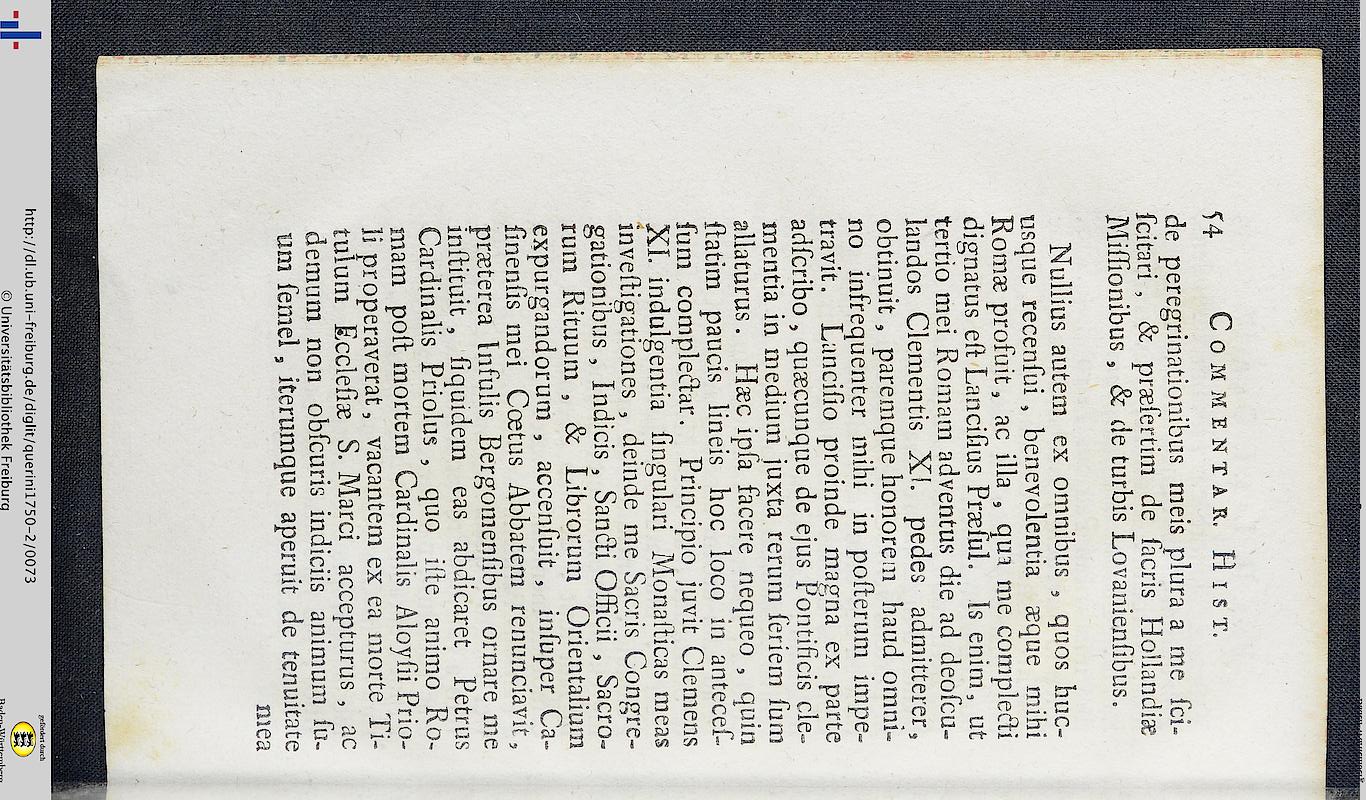 54 COMMENTAR. HIST.
de peregrinationibus meis plura a me ſci-
ſcitari, & præſertim de ſacris Hollandiæ
Miſſionibus, & de turbis Lovanienſibus.
Nullius autem ex omnibus, quos huc-
usque recenſui, benevolentia æque mihi
Romæ profuit, ac illa, qua me complecti
dignatus eſt Lanciſius Præſul. Is enim, ut
tertio mei Romam adventus die ad deoſcu-
landos Clementis XI. pedes admitterer,
obtinuit, paremque honorem haud omni-
no infrequenter mihi in poſterum impe-
travit. Lanciſio proinde magna ex parte
adſcribo, quæcunque de ejus Pontificis cle-
mentia in medium juxta rerum ſeriem ſum
allaturus. Hæc ipſa facere nequeo, quin
ſtatim paucis lineis hoc loco in anteceſ-
ſum complectar. Principio juvit Clemens
XI. indulgentia ſingulari Monaſticas meas
inveſtigationes, deinde me Sacris Congre-
gationibus, Indicis, Sancti Officii, Sacro-
rum Rituum, & Librorum Orientalium
expurgandorum, accenſuit, inſuper Ca-
ſinenſis mei Cœtus Abbatem renunciavit,
præterea Inſulis Bergomenſibus ornare me
inſtituit, ſiquidem eas abdicaret Petrus
Cardinalis Priolus, quo iſte animo Ro-
mam poſt mortem Cardinalis Aloyſii Prio-
li properaverat, vacantem ex ea morte Ti-
tulum Eccleſiæ S. Marci accepturus, ac
demum non obſcuris indiciis animum ſu-
um ſemel, iterumque aperuit de tenuitate
mea
http://dl.ub.uni-freiburg.de/diglit/querini1750-2/0073
© Universitätsbibliothek Freiburg
gefördert durch
Baden-Württemberg